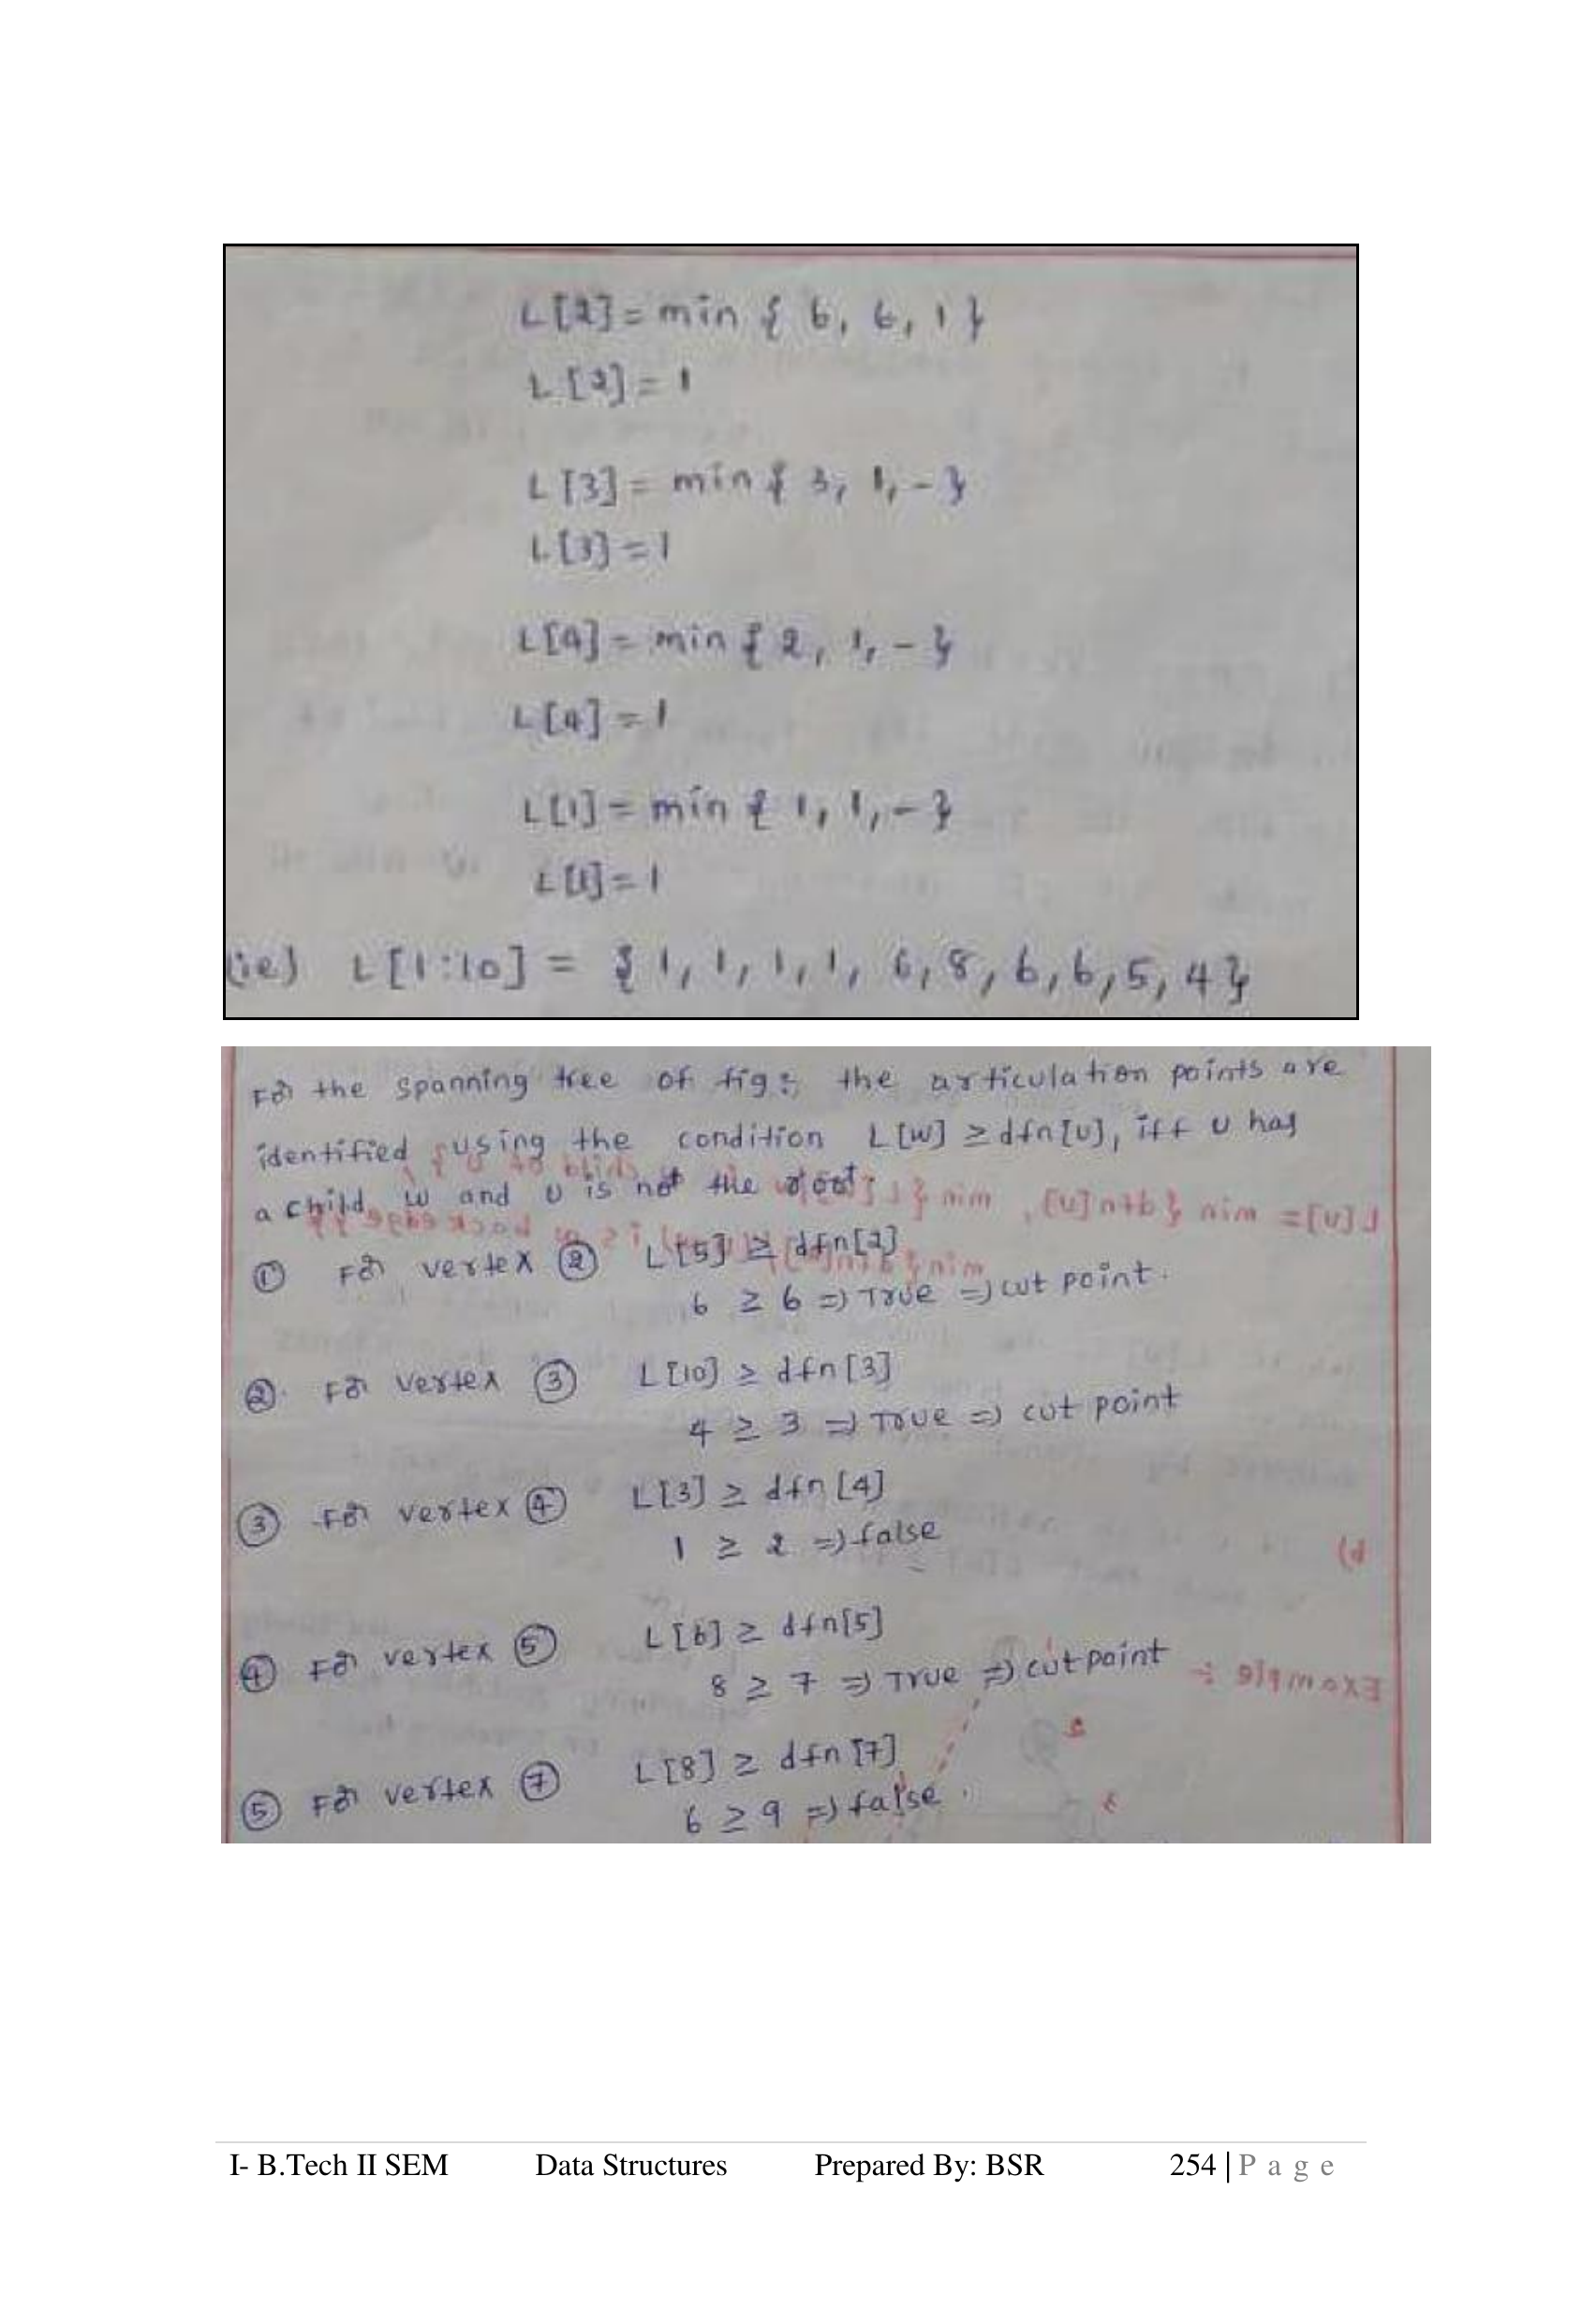 L[2] = min { 6, 6, 1 }
L[2] = 1
L[3] = min { 3, 1, - }
L[3] = 1
L[4] = min { 2, 1, - }
L[4] = 1
L[1] = min { 1, 1, - }
L[1] = 1
(ie) L[1:10] = { 1, 1, 1, 1, 6, 8, 6, 6, 5, 4 }
For the spanning tree of fig: the articulation points are
identified using the condition L[w] ≥ dfn[u], iff u has
a child w and u is not the root.
① For vertex ② L[5] ≥ dfn[2]
6 ≥ 6 => True => cut point.
②. For vertex ③ L[10] ≥ dfn[3]
4 ≥ 3 => True => cut point
③ For vertex ④ L[3] ≥ dfn[4]
1 ≥ 2 => false
④ For vertex ⑤ L[6] ≥ dfn[5]
8 ≥ 7 => True => cut point
⑤ For vertex ⑦ L[8] ≥ dfn[7]
6 ≥ 9 => false.
I- B.Tech II SEM Data Structures Prepared By: BSR 254 | Page